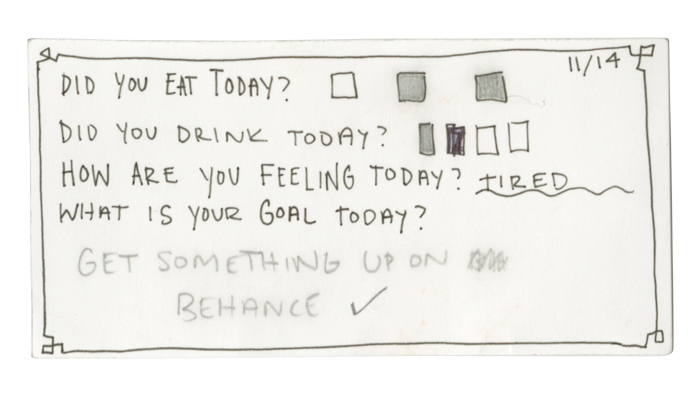 11/14
DID YOU EAT TODAY?
DID YOU DRINK TODAY?
HOW ARE YOU FEELING TODAY? TIRED
WHAT IS YOUR GOAL TODAY?
GET SOMETHING UP ON
BEHANCE ✓